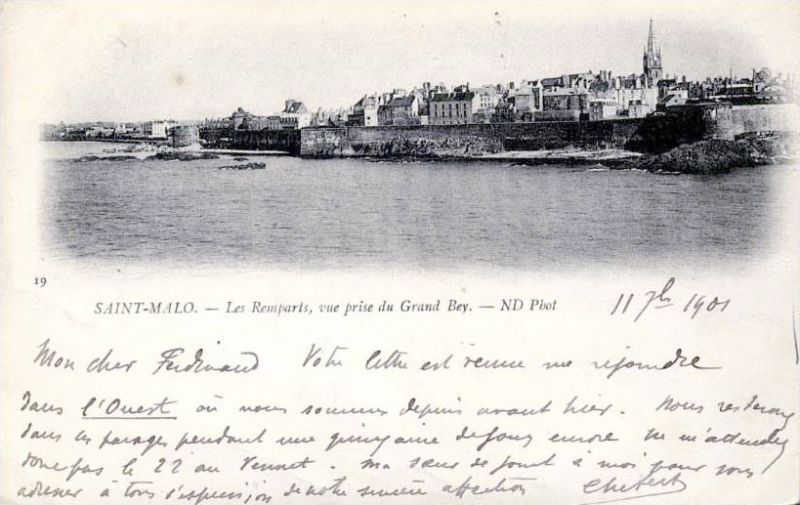 19
SAINT-MALO. — Les Remparts, vue prise du Grand Bey. — ND Phot
11 7bre 1901
Mon cher Ferdinand Votre lettre est venue me rejoindre
dans l'Ouest où nous sommes depuis avant hier. Nous resterons
dans ces parages pendant une quinzaine de jours encore Ne m'attendez
donc pas le 22 au Vennet. Ma sœur se joint à moi pour vous
adresser à tous l'expression de notre sincère affection